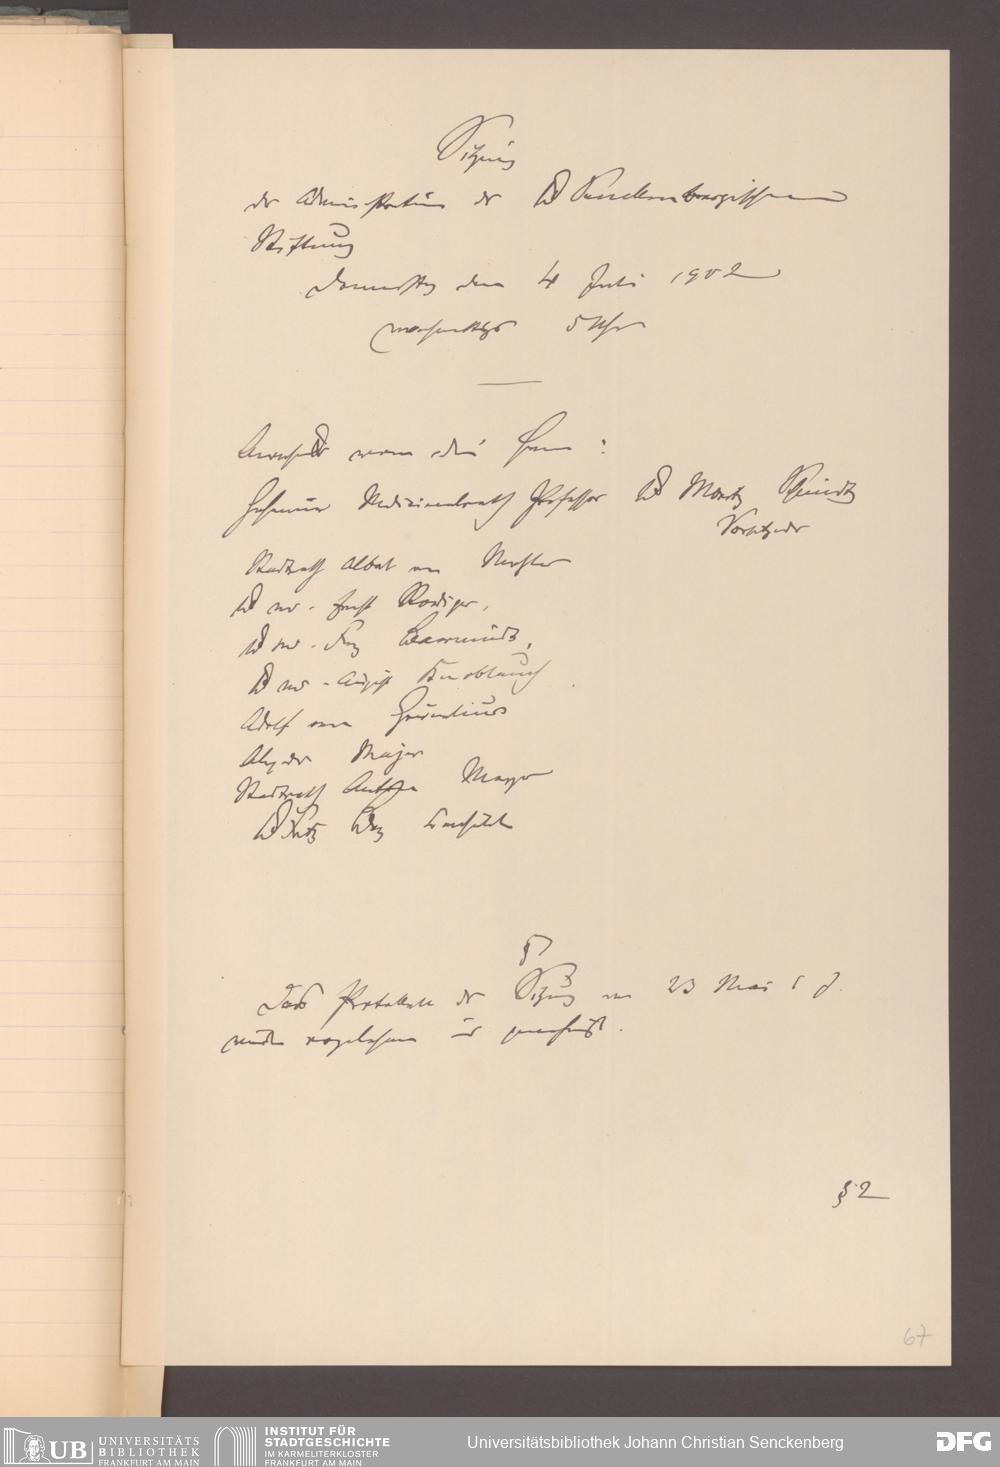 Sitzung
der Administration der Dr Senckenbergischen
Stiftung
Donnerstag den 4 Juli 1902
nachmittags 5 Uhr
Anwesend waren die Herrn:
Geheimer Medizinalrath Professor Dr Moritz Schmidt
Vorsitzender
Stadtrath Albert von Metzler
Dr med. Ernst Roediger,
Dr med.
Dr med. August Knoblauch
Adolf von Grunelius
Alexander Majer
Stadtrath Anton Meyer
Dr Fritz
§ 1
Das Protokoll der Sitzung vom 23 Mai l J.
wurde vorgelesen und genehmigt.
§ 2
67
UB UNIVERSITÄTS
BIBLIOTHEK
FRANKFURT AM MAIN
INSTITUT FÜR
STADTGESCHICHTE
IM KARMELITERKLOSTER
FRANKFURT AM MAIN
Universitätsbibliothek Johann Christian Senckenberg
DFG